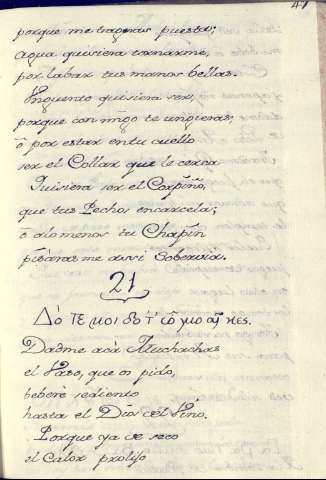 47
porque me traginas puesta;
Agua quisiera tornarme,
por labar tus manos bellas.
Vnguento quisiera ser,
porque conmigo te ungieras,
ò por estar en tu cuello
ser el Collar que le cerca
Quisiera ser el Corpiño,
que tus Pechos encarcela;
ò alo menos tu Chapin
pisàras me aun Sobervia.
21
Δό τε μοι δό τ᾽ ὦ γυναῖκες.
Dadme acà Muchachas
el Vaso, que os pido,
beberè sediento
hasta el Dios del Vino.
Porque ya de seco
el Calor prolijo